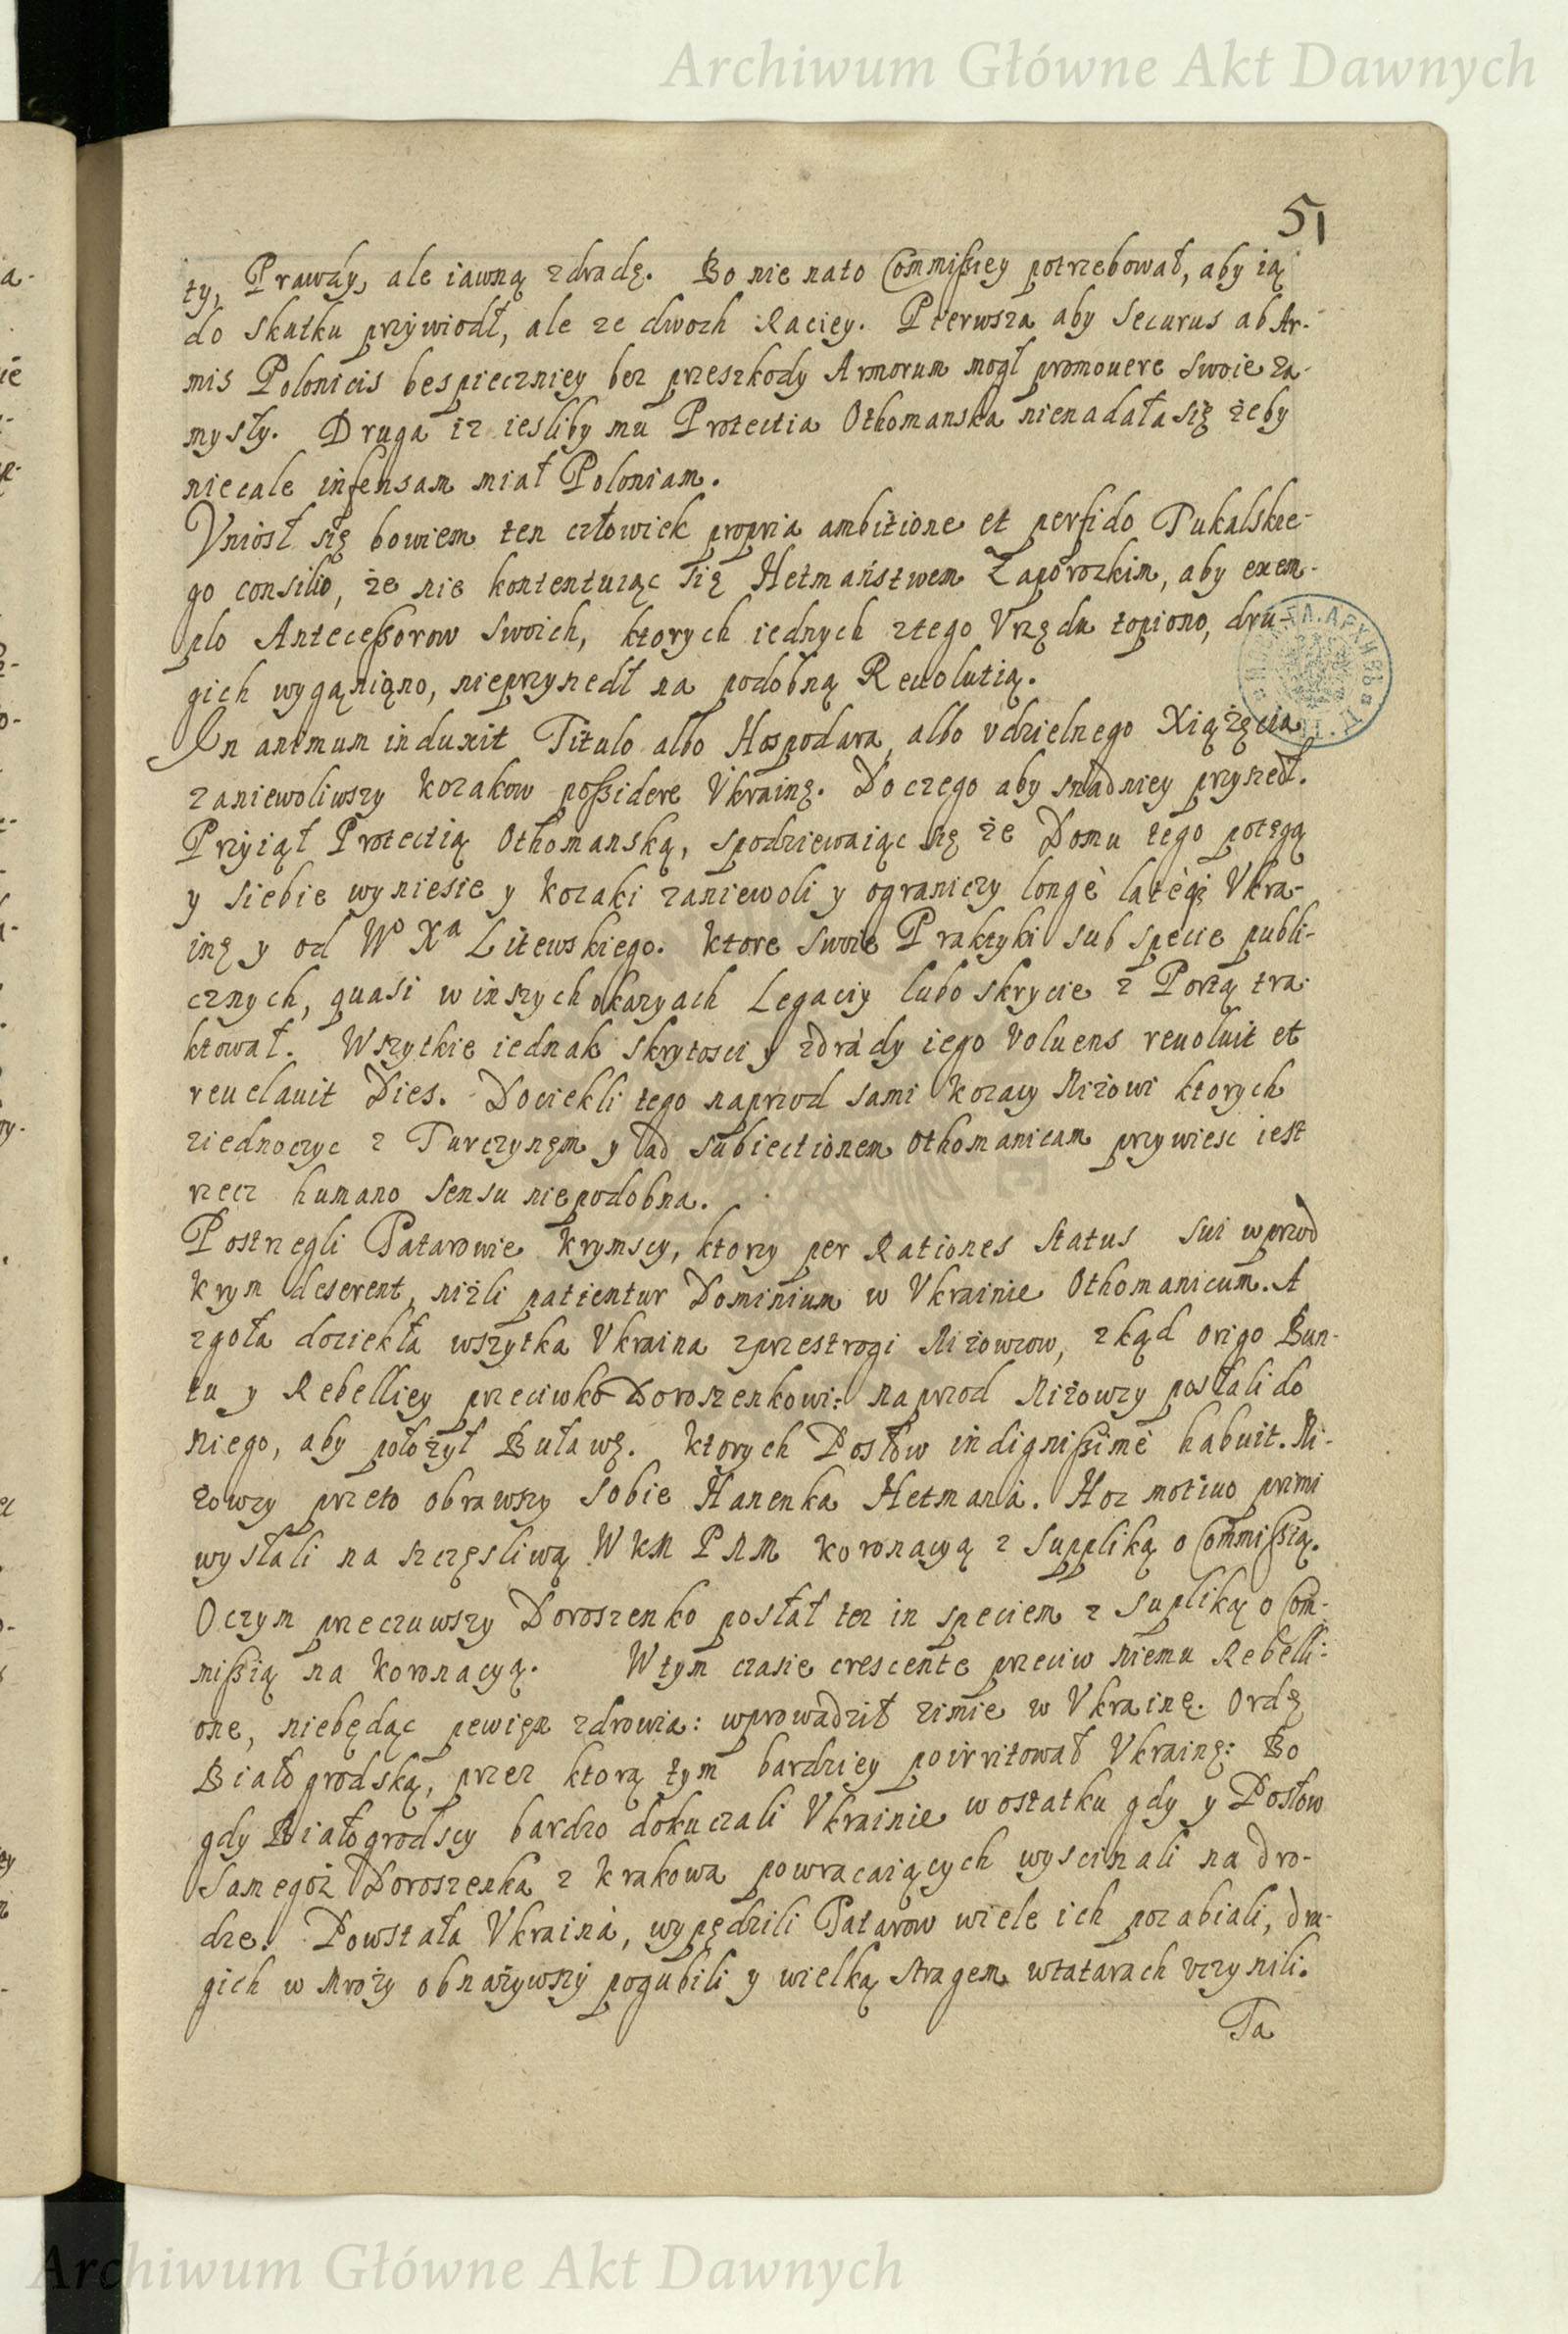 Archiwum Główne Akt Dawnych
51
ty, Prawdy, ale iawną zdradę. Bo nie nato Commißiey potrzebował, aby ią
do skutku przywiodł, ale ze dwoch Raciey. Pierwsza aby securus ab Ar-
mis Polonicis bespieczniey bez przeszkody Armorum mogł promouere swoie za-
mysły. Druga iz iesliby mu Protectia Othomanska nienadała się żeby
niecale infensam miał Poloniam.
Vniosł się bowiem ten człowiek propria ambitione et perfido Tukalskie-
go consilio, że nie kontentuiąc się Hetmaństwem Zaporozkim, aby exem-
plo Anteceßorow swoich, ktorych iednych ztego Vrzędu topiono, dru-
gich wyganiąno, nieprzyszedł na podobną Reuolutią.
In animum induxit Titulo albo Hospodara albo vdzielnego Xiążęcia
zaniewoliwszy Kozakow poßidere Vkrainę. Do czego aby snadniey przyszedł.
Przyiął Protectią Othomanską, spodziewaiąc się że Domu tego potęgą
y siebie wyniesie y Kozaki zaniewoli y ograniczy longè latèq; Vkra-
inę y od Wo Xa Litewskiego. Ktore swoie Praktyki sub specie publi-
cznych, quasi w inszych okazyach Legaciy lubo skrycie z Portą tra-
ktował. Wszytkie iednak skrytosci y zdrády iego Voluens reuoluit et
reuelauit Dies. Dociekli tego naprzod sami Kozacy Niżowi ktorych
ziednoczyc z Turczynęm y ad subiectionem Othomanicam przywiesc iest
rzecz humano sensu niepodobna.
Postrzegli Tatarowie Krymscy, ktorzy per Rationes Status sui wprzod
Krym deserent, niżli patientur Dominium w Vkrainie Othomanicum. A
zgoła dociekła wszytka Vkraina zprzestrogi Niżowcow, zkąd origo Bun-
tu y Rebelliey przeciwko Doroszenkowi: naprzod Niżowzy posłali do
niego, aby położył Buławę. Ktorych Posłow indignißimè habuit. Ni-
żowzy przeto obrawszy sobie Hanenka Hetmana. Hoc motiuo primi
wysłali na szczęsliwą WKM PNM Koronacyą z Suppliką o Commißią.
Oczym przeczuwszy Doroszenko posłał tez in speciem z supliką o Com-
mißią na Koronacyą. Wtym czasie crescente przeciw niemu Rebelli-
one, niebędąc pewięn zdrowia: wprowadził zimie w Vkrainę. Ordę
Białogrodską, przez ktorą tym bardziey poirritował Vkrainę: Bo
gdy Białogrodscy bardzo dokuczali Vkrainie w ostatku gdy y Posłow
Samegoż Doroszenka z Krakowa powracaiących wyscinali na dro-
dze. Powstała Vkraina, wypędzili Tatarow wiele ich pozabiali, dru-
gich w Mrozy obnażywszy pogubili y wielką stragem wtatarach vczynili.
Ta
Archiwum Główne Akt Dawnych